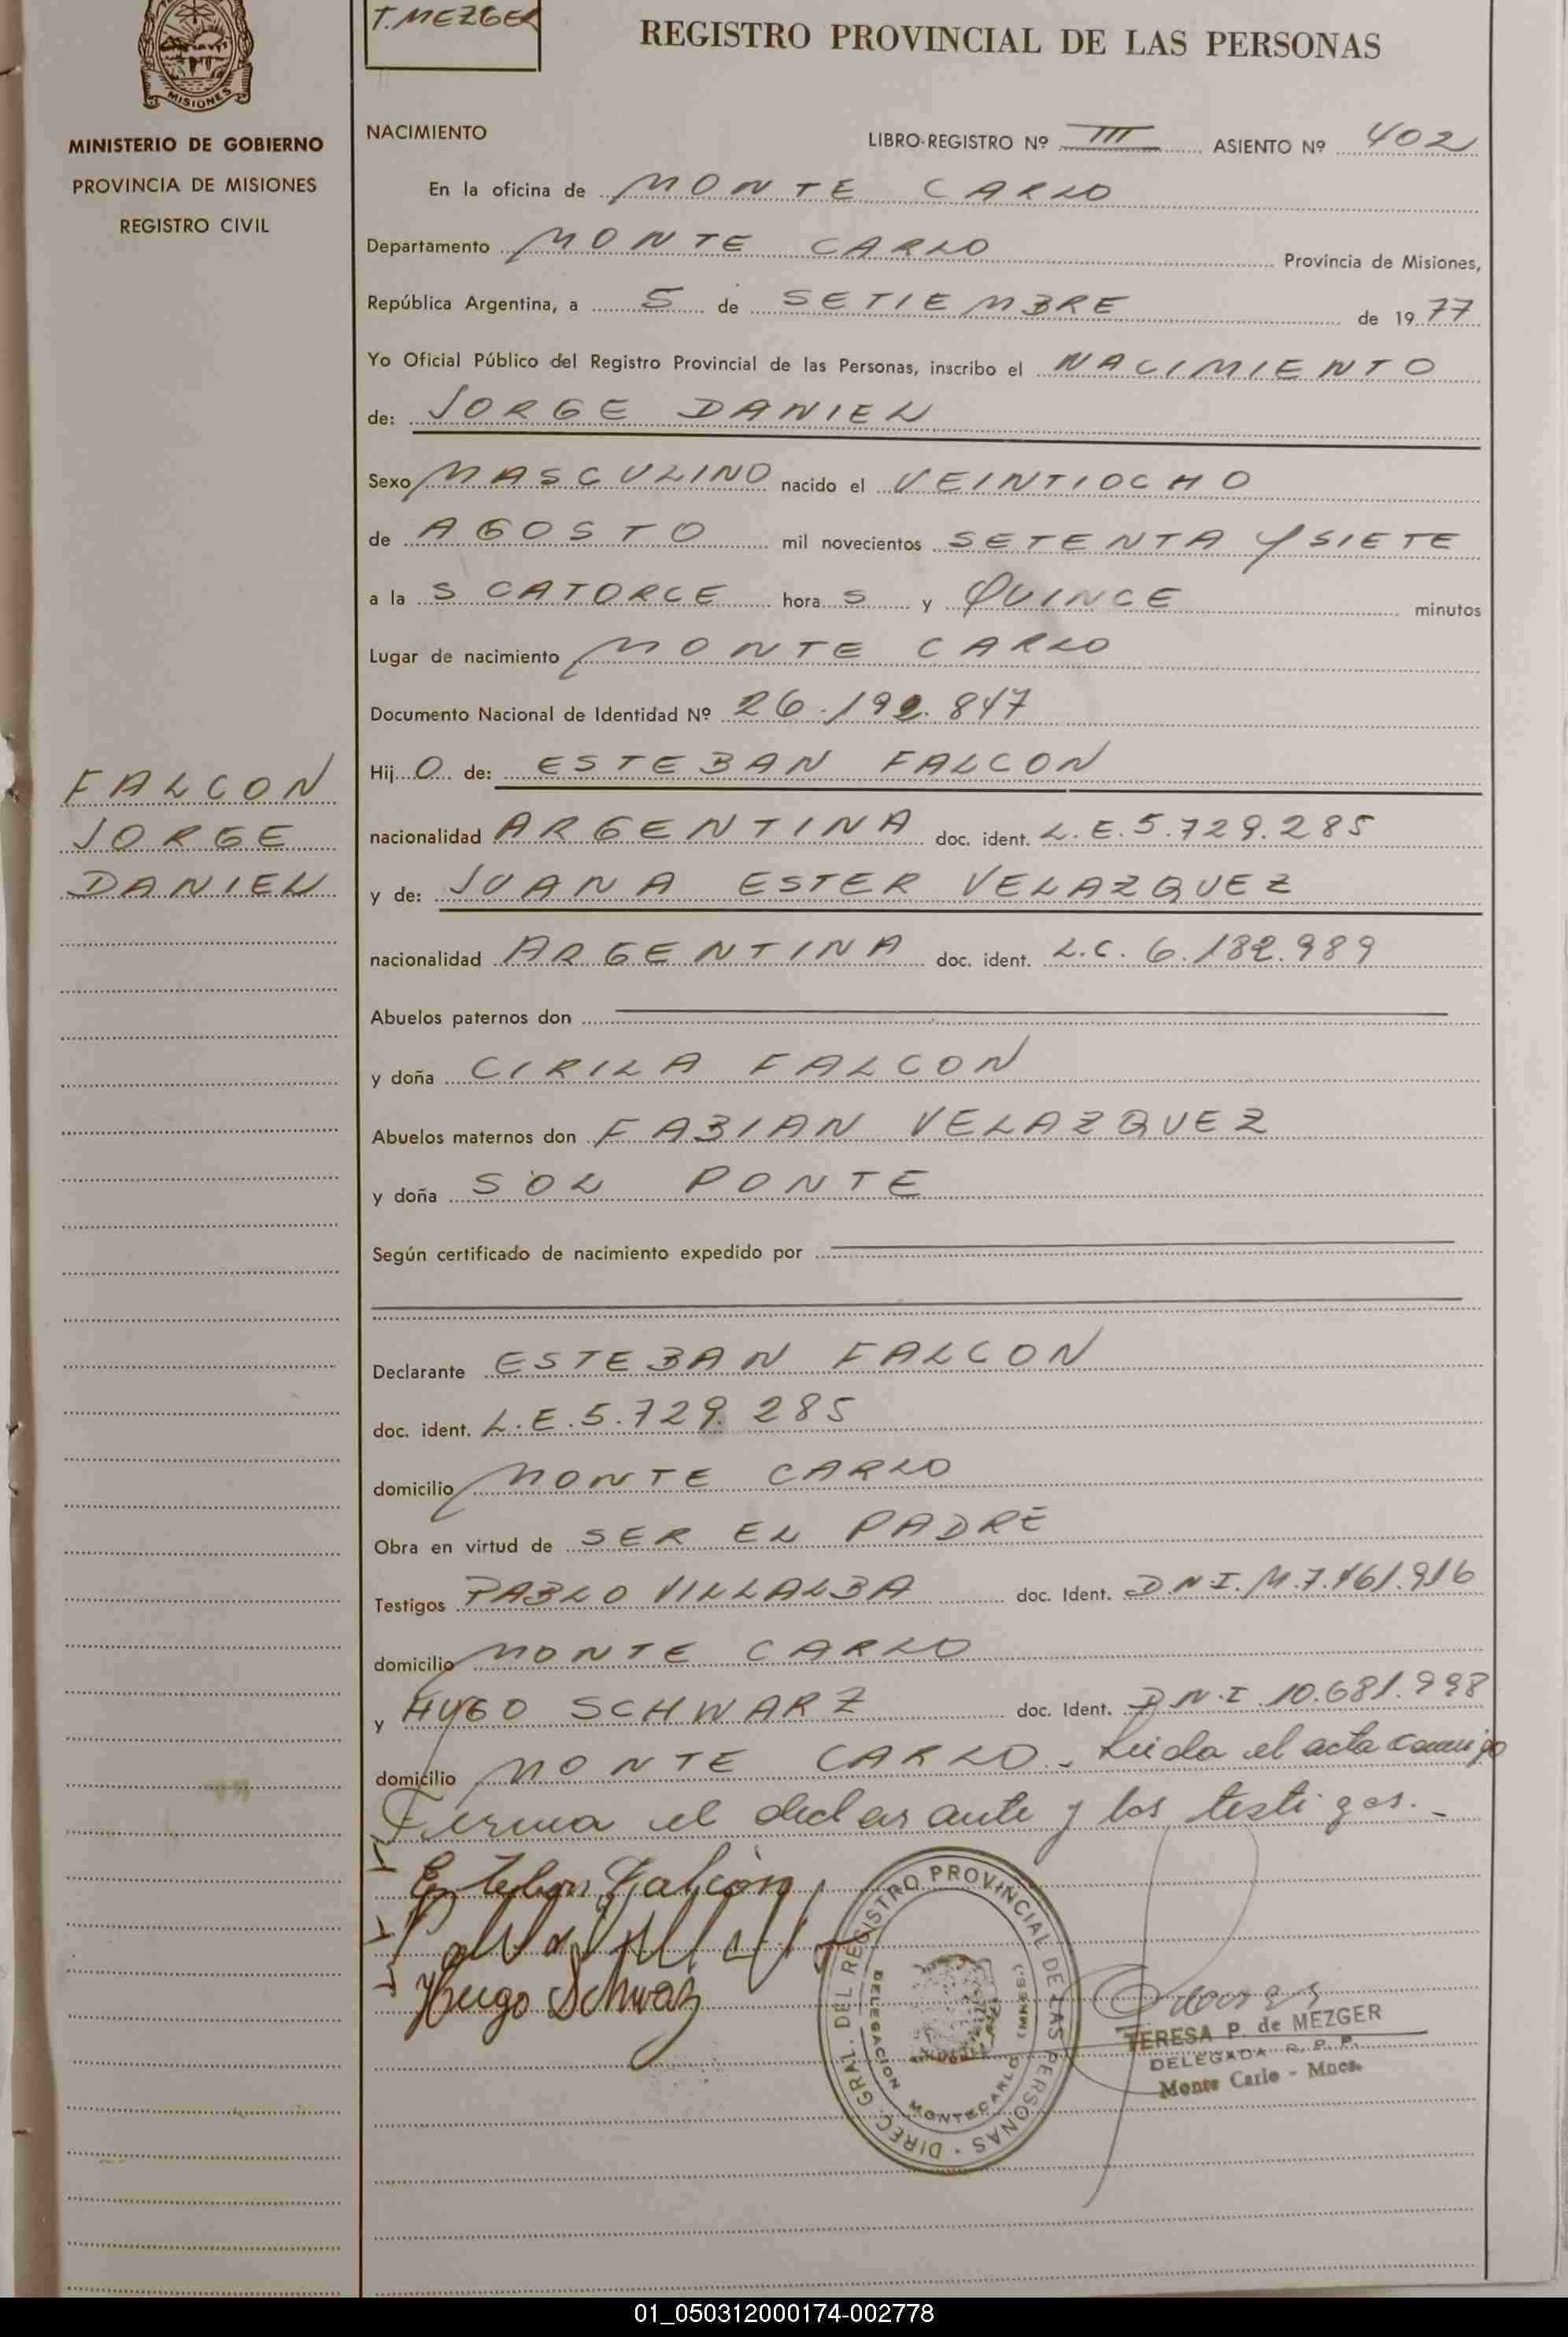 T. MEZGER
REGISTRO PROVINCIAL DE LAS PERSONAS
MISIONES
MINISTERIO DE GOBIERNO
PROVINCIA DE MISIONES
REGISTRO CIVIL
NACIMIENTO
LIBRO-REGISTRO Nº III ASIENTO Nº 402
En la oficina de MONTE CARLO
Departamento MONTE CARLO Provincia de Misiones,
República Argentina, a 5 de SETIEMBRE de 1977
Yo Oficial Público del Registro Provincial de las Personas, inscribo el NACIMIENTO
de: JORGE DANIEL
Sexo MASCULINO nacido el VEINTIOCHO
de AGOSTO mil novecientos SETENTA Y SIETE
a la S CATORCE hora S y QUINCE minutos
Lugar de nacimiento MONTE CARLO
Documento Nacional de Identidad Nº 26.192.847
Hij O de: ESTEBAN FALCON
nacionalidad ARGENTINA doc. ident. L.E. 5.729.285
y de: JUANA ESTER VELAZQUEZ
nacionalidad ARGENTINA doc. ident. L.C. 6.182.989
Abuelos paternos don
y doña CIRILA FALCON
Abuelos maternos don FABIAN VELAZQUEZ
y doña SOL PONTE
Según certificado de nacimiento expedido por
FALCON
JORGE
DANIEL
Declarante ESTEBAN FALCON
doc. ident. L.E. 5.729.285
domicilio MONTE CARLO
Obra en virtud de SER EL PADRE
Testigos PABLO VILLALBA doc. Ident. D N I. M. 7.461.916
domicilio MONTE CARLO
y HUGO SCHWARZ doc. Ident. D.N.I 10.681.998
domicilio MONTE CARLO - Leida el acta conmigo
Firma el declarante y los testigos. -
Esteban Falcón
Hugo Schwarz
DIREC. GRAL. DEL REGISTRO PROVINCIAL DE LAS PERSONAS
DELEGACION MONTECARLO (MNES.)
TERESA P. de MEZGER
DELEGADA R. P. P.
Monte Carlo - Mnes.
01_050312000174-002778